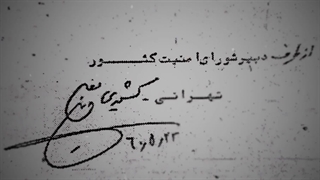 از طرف دبیر شورای امنیت کشور
تهرانی - کشمیری
۶۰٫۵٫۲۳